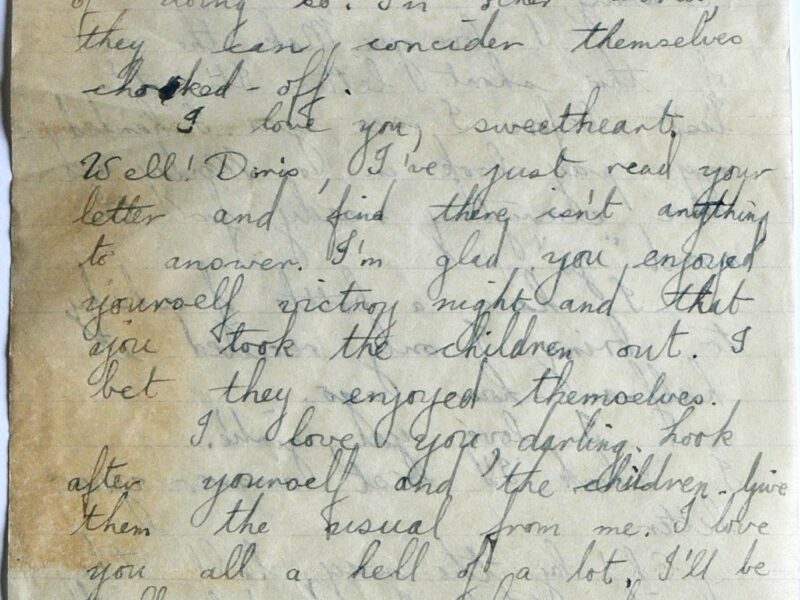 of doing so. In other words,
they can concider themselves
choked-off.
I love you, sweetheart.
Well! Doris, I've just read your
letter and find there isn't anything
to answer. I'm glad you enjoyed
yourself victroy night and that
you took the children out. I
bet they enjoyed themselves.
I love you, darling. Look
after yourself and the children. Give
them the usual from me. I love
you all a hell of a lot. I'll be